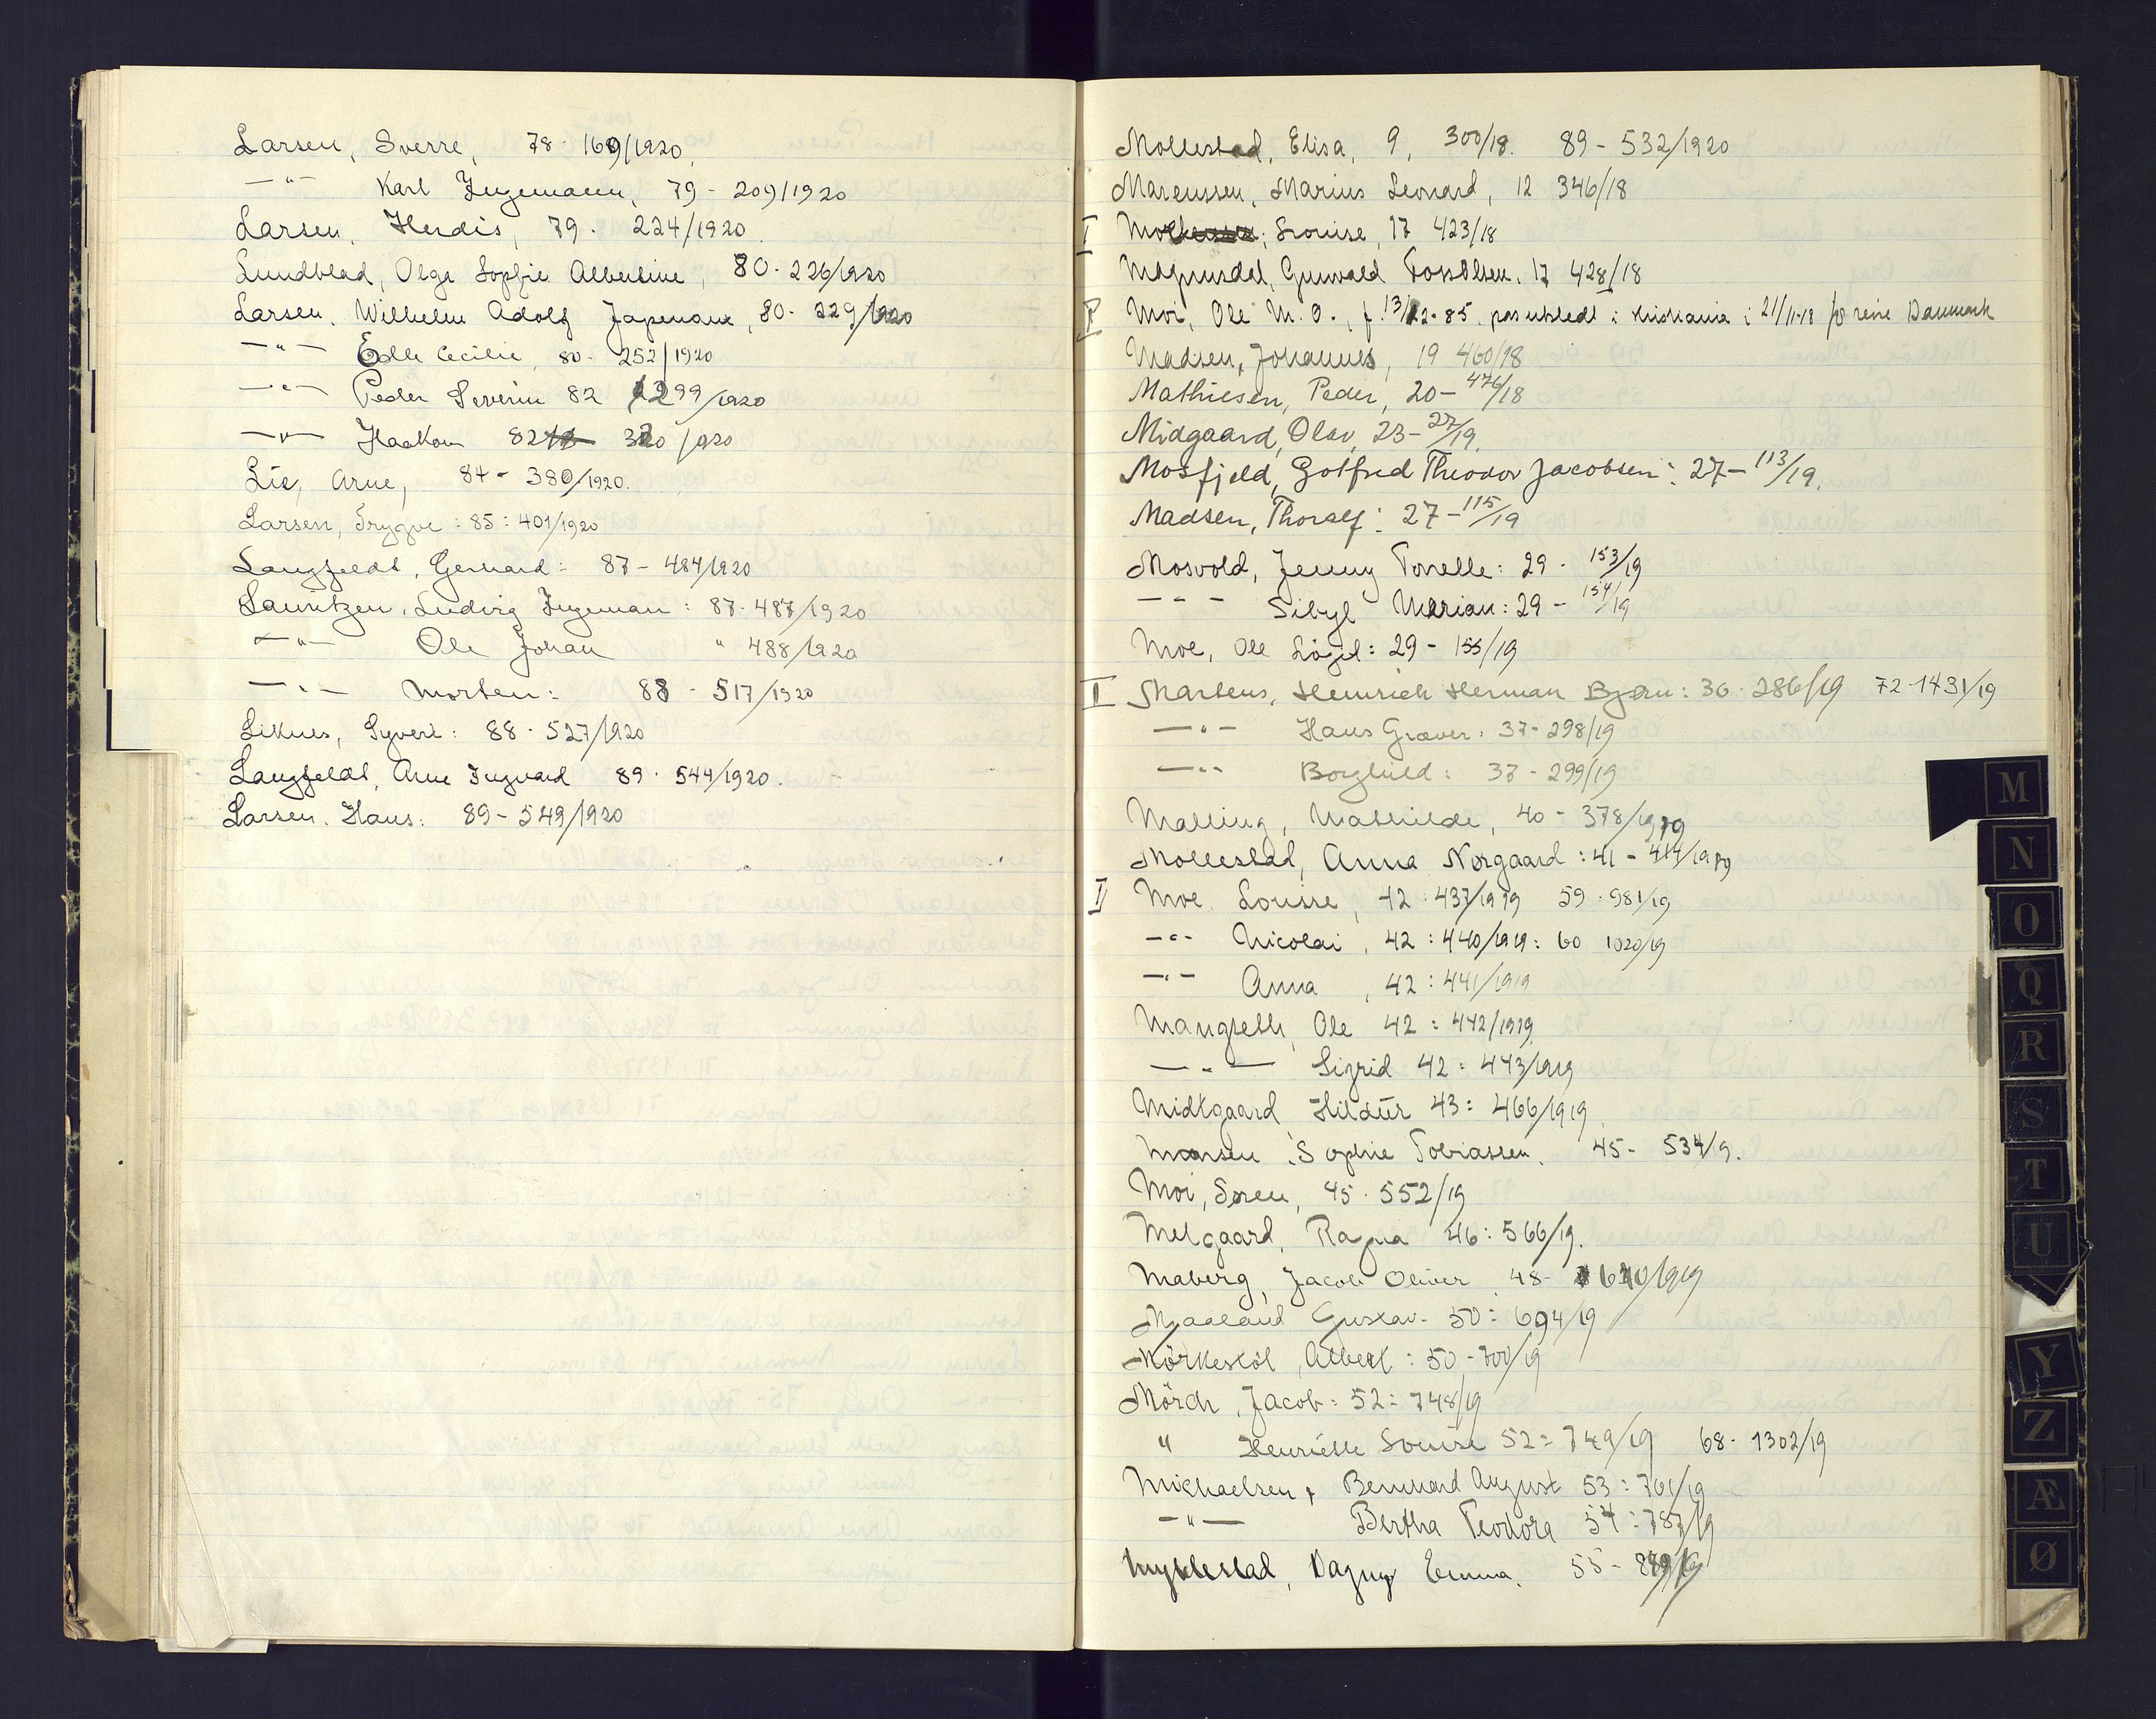 Larsen, Sverre, 78 - 169/1920.
—"— Karl Ingemann, 79 - 209/1920
Larsen, Herdis, 79 - 224/1920.
Lundblad, Olga Sophie Albertine, 80 - 226/1920
Larsen, Wilhelm Adolf, 80 - 229/1920
—"— Edle Cecilie, 80 - 252/1920
—"— Peder Severin 82 299/1920
—"— Haakon 82 320/1920
Lie, Arne, 84 - 380/1920.
Larsen, Trygve : 85 : 401/1920
Langfeldt, Gerhard : 87 - 484/1920
Lauritzen, Ludvig Ingeman : 87 - 487/1920
—"— Ole Johan " 488/1920
—"— Morten : 88 - 517/1920
Liknes, Syvert : 88 - 527/1920
Langfeldt, Arne Ingvard 89 - 544/1920.
Larsen, Hans : 89 - 549/1920
Mollestad, Elisa, 9, 300/18. 89 - 532/1920
Marcussen, Marius Leonard, 12 346/18
I Louise, 17 423/18
Gunvald 17 428/18
Moi, Ole M. O., f. 13/12-85, pas utstedt i Kristiania i 21/11-18 for reise Danmark
Madsen, Johannes, 19 460/18
Mathiesen, Peder, 20 - 476/18
Midgaard, Olav, 23 - 27/19.
Mosfjeld, Gotfred Theodor Jacobsen : 27 - 113/19.
Madsen, Thoralf : 27 - 115/19
Mosvold, Jenny Tonelle : 29 - 153/19
—"— Sibyl Marian : 29 - 154/19
Moe, Ole : 29 - 155/19
I Martens, Heinrich Herman Bjørn : 36 - 286/19 72-1431/19
—"— Hans Græver : 37 - 298/19
—"— Borghild : 37 - 299/19
Malling, Mathilde, 40 - 378/1919
Mollestad, Anna Nørgaard : 41 - 414/1919
I Moe Louise, 42 : 437/1919 59 - 981/19
—"— Nicolai, 42 : 440/1919 : 60 1020/19
—"— Anna, 42 : 441/1919
Mangseth, Ole 42 : 442/1919
—"— Sigrid 42 : 443/1919
Midtgaard Hildur 43 : 466/1919
Monsen, Sophie Tobiassen, 45 - 534/19.
Moi, Søren, 45 - 552/19
Melgaard, Ragna 46 : 566/19.
Maberg, Jacob Oliver, 48 - 640/1919
Mjaaland Gustav - 50 : 694/19
Mörkestöl, Albert : 50 - 700/19
Mörch, Jacob : 52 : 748/19
" Henriette Louise 52 : 749/19 68 - 1302/19
Michaelsen, Bernhard August 53 : 761/19
—"— Bertha Teodora 54 : 787/19
Myklestad, Dagny Emma, 55 -
M
N
O
Q
R
S
T
U
Y
Z
Æ
Ø